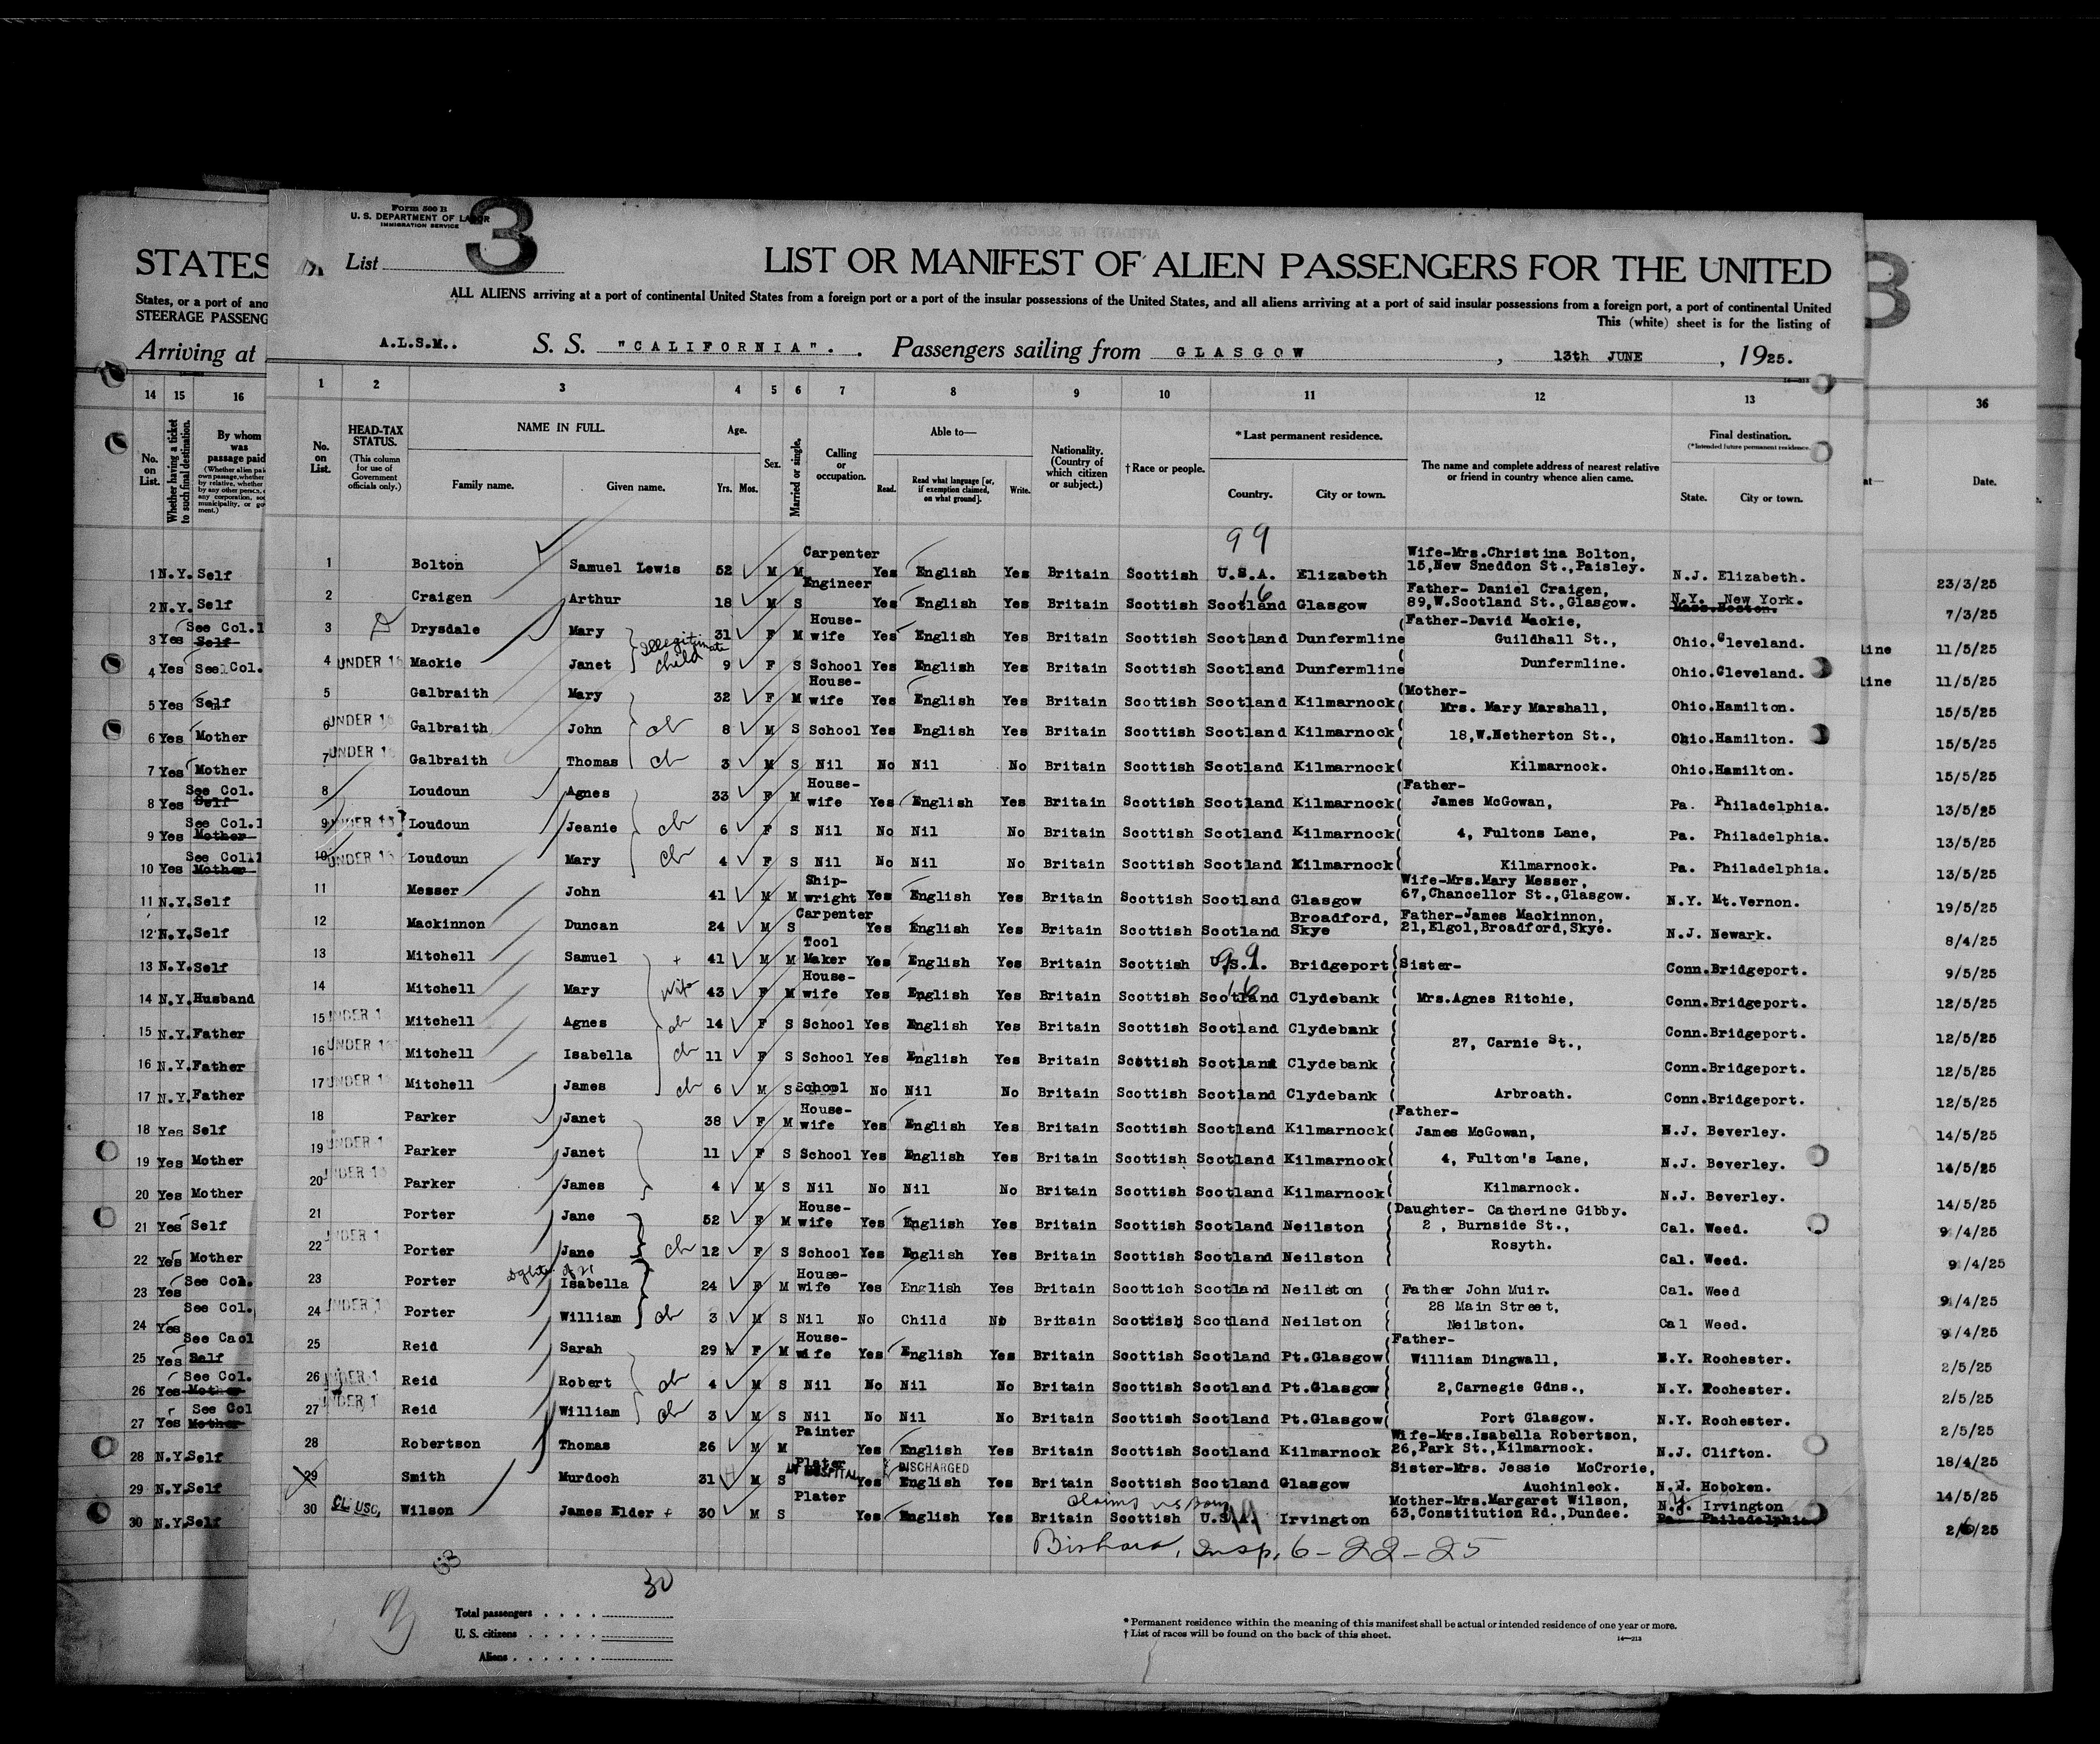 Form 500 B
U. S. DEPARTMENT OF LABOR
IMMIGRATION SERVICE
3
List
STATES
LIST OR MANIFEST OF ALIEN PASSENGERS FOR THE UNITED
States, or a port of ano
STEERAGE PASSENG
ALL ALIENS arriving at a port of continental United States from a foreign port or a port of the insular possessions of the United States, and all aliens arriving at a port of said insular possessions from a foreign port, a port of continental United
This (white) sheet is for the listing of
Arriving at
A.L.S.M.. S. S. "CALIFORNIA". Passengers sailing from GLASGOW, 13th JUNE, 1925.
14 15 16 1 2 3 4 5 6 7 8 9 10 11 12 13 36
No. on List.
Whether having a ticket to such final destination.
By whom was passage paid
No. on List.
HEAD-TAX STATUS.
(This column for use of Government officials only.)
NAME IN FULL.
Family name. Given name.
Age.
Yrs. Mos.
Sex.
Married or single.
Calling or occupation.
Able to—
Read. Read what language [or, if exemption claimed, on what ground]. Write.
Nationality. (Country of which citizen or subject.)
†Race or people.
*Last permanent residence.
Country. City or town.
The name and complete address of nearest relative or friend in country whence alien came.
Final destination.
(*Intended future permanent residence.
State. City or town.
Date.
99
1 N.Y. Self 1 Bolton Samuel Lewis 52 M M Carpenter Yes English Yes Britain Scottish U.S.A. Elizabeth Wife-Mrs.Christina Bolton, 15,New Sneddon St.,Paisley. N.J. Elizabeth. 23/3/25
2 N.Y. Self 2 Craigen Arthur 18 M S Engineer Yes English Yes Britain Scottish Scotland Glasgow Father- Daniel Craigen, 89,W.Scotland St.,Glasgow. N.Y. New York. Mass.Boston. 7/3/25
3 Yes See Col.1 Self 3 Drysdale Mary 31 F M House-wife Yes English Yes Britain Scottish Scotland Dunfermline (Father-David Mackie, Guildhall St., Ohio.Cleveland. line 11/5/25
4 Yes See Col. 4 UNDER 16 Mackie Janet Illegitimate child 9 F S School Yes English Yes Britain Scottish Scotland Dunfermline ( Dunfermline. Ohio.Cleveland. line 11/5/25
5 Yes Self 5 Galbraith Mary 32 F M House-wife Yes English Yes Britain Scottish Scotland Kilmarnock (Mother- Mrs. Mary Marshall, Ohio.Hamilton. 15/5/25
6 Yes Mother 6 UNDER 16 Galbraith John ch 8 M S School Yes English Yes Britain Scottish Scotland Kilmarnock ( 18,W.Netherton St., Ohio.Hamilton. 15/5/25
7 Yes Mother 7 UNDER 16 Galbraith Thomas ch 3 M S Nil No Nil No Britain Scottish Scotland Kilmarnock( Kilmarnock. Ohio.Hamilton. 15/5/25
8 Yes See Col. Self 8 Loudoun Agnes 33 F M House-wife Yes English Yes Britain Scottish Scotland Kilmarnock( Father- James McGowan, Pa. Philadelphia. 13/5/25
9 Yes See Col.1 Mother 9 UNDER 16 Loudoun Jeanie ch 6 F S Nil No Nil No Britain Scottish Scotland Kilmarnock( 4, Fultons Lane, Pa. Philadelphia. 13/5/25
10 Yes See Col11 Mother 10 UNDER 16 Loudoun Mary ch 4 F S Nil No Nil No Britain Scottish Scotland Kilmarnock( Kilmarnock. Pa. Philadelphia. 13/5/25
11 N.Y. Self 11 Messer John 41 M M Ship-wright Yes English Yes Britain Scottish Scotland Glasgow Wife-Mrs.Mary Messer, 67,Chancellor St.,Glasgow. N.Y. Mt.Vernon. 19/5/25
12 N.Y. Self 12 Mackinnon Duncan 24 M S Carpenter Yes English Yes Britain Scottish Scotland Broadford, Skye Father-James Mackinnon, 21,Elgol,Broadford,Skye. N.J. Newark. 8/4/25
13 N.Y. Self 13 Mitchell Samuel + 41 M M Tool Maker Yes English Yes Britain Scottish U.S.A. 99 Bridgeport (Sister- Conn.Bridgeport. 9/5/25
14 N.Y. Husband 14 Mitchell Mary Wife 43 F M House-wife Yes English Yes Britain Scottish Scotland Clydebank ( Mrs.Agnes Ritchie, Conn.Bridgeport. 12/5/25
15 N.Y. Father 15 UNDER 1 Mitchell Agnes ch 14 F S School Yes English Yes Britain Scottish Scotland Clydebank ( 27, Carnie St., Conn.Bridgeport. 12/5/25
16 N.Y. Father 16 UNDER 16 Mitchell Isabella ch 11 F S School Yes English Yes Britain Scottish Scotland Clydebank ( Conn.Bridgeport. 12/5/25
17 N.Y. Father 17 UNDER 1 Mitchell James ch 6 M S School No Nil No Britain Scottish Scotland Clydebank ( Arbroath. Conn.Bridgeport. 12/5/25
18 Yes Self 18 Parker Janet 38 F M House-wife Yes English Yes Britain Scottish Scotland Kilmarnock( Father- James McGowan, N.J. Beverley. 14/5/25
19 Yes Mother 19 UNDER 1 Parker Janet 11 F S School Yes English Yes Britain Scottish Scotland Kilmarnock( 4, Fulton's Lane, N.J. Beverley. 14/5/25
20 Yes Mother 20 UNDER 16 Parker James 4 M S Nil No Nil No Britain Scottish Scotland Kilmarnock( Kilmarnock. N.J. Beverley. 14/5/25
21 Yes Self 21 Porter Jane 52 F M House-wife Yes English Yes Britain Scottish Scotland Neilston (Daughter- Catherine Gibby. 2 , Burnside St., Cal. Weed. 9/4/25
22 Yes Mother 22 UNDER 1 Porter Jane ch 12 F S School Yes English Yes Britain Scottish Scotland Neilston ( Rosyth. Cal. Weed. 9/4/25
23 Yes See Col. 23 Porter Isabella Dghter of 21 24 F M House-wife Yes English Yes Britain Scottich Scotland Neilston ( Father John Muir. 28 Main Street, Cal. Weed 9/4/25
24 Yes See Col. 24 UNDER 1 Porter William ch 3 M S Nil No Child No Britain Scottish Scotland Neilston ( Neilston. Cal Weed. 9/4/25
25 Yes See Caol Self 25 Reid Sarah 29 F M House-wife Yes English Yes Britain Scottish Scotland Pt.Glasgow( Father- William Dingwall, N.Y. Rochester. 2/5/25
26 Yes See Col. Mother 26 UNDER 1 Reid Robert ch 4 M S Nil No Nil No Britain Scottish Scotland Pt.Glasgow( 2,Carnegie Gdns., N.Y. Rochester. 2/5/25
27 Yes See Col Mother 27 UNDER 1 Reid William ch 3 M S Nil No Nil No Britain Scottish Scotland Pt.Glasgow( Port Glasgow. N.Y. Rochester. 2/5/25
28 N.Y. Self 28 Robertson Thomas 26 M M Painter Yes English Yes Britain Scottish Scotland Kilmarnock Wife-Mrs.Isabella Robertson, 26,Park St.,Kilmarnock. N.J. Clifton. 18/4/25
29 N.Y. Self 29 Smith Murdoch 31 M S Plater IN HOSPITAL DISCHARGED Yes English Yes Britain Scottish Scotland Glasgow Sister-Mrs. Jessie McCrorie, Auchinleck. N.J. Hoboken. 14/5/25
30 N.Y. Self 30 CL: USC, Wilson James Elder + 30 M S Plater Yes English Yes Britain Scottish U.S.A. Irvington Claims US Born Mother-Mrs.Margaret Wilson, 63,Constitution Rd.,Dundee. N.J. Irvington Pa. Philadelphia 2/6/25
Insp. 6-22-25
30
Total passengers
U. S. citizens
Aliens
* Permanent residence within the meaning of this manifest shall be actual or intended residence of one year or more.
† List of races will be found on the back of this sheet.
14—213